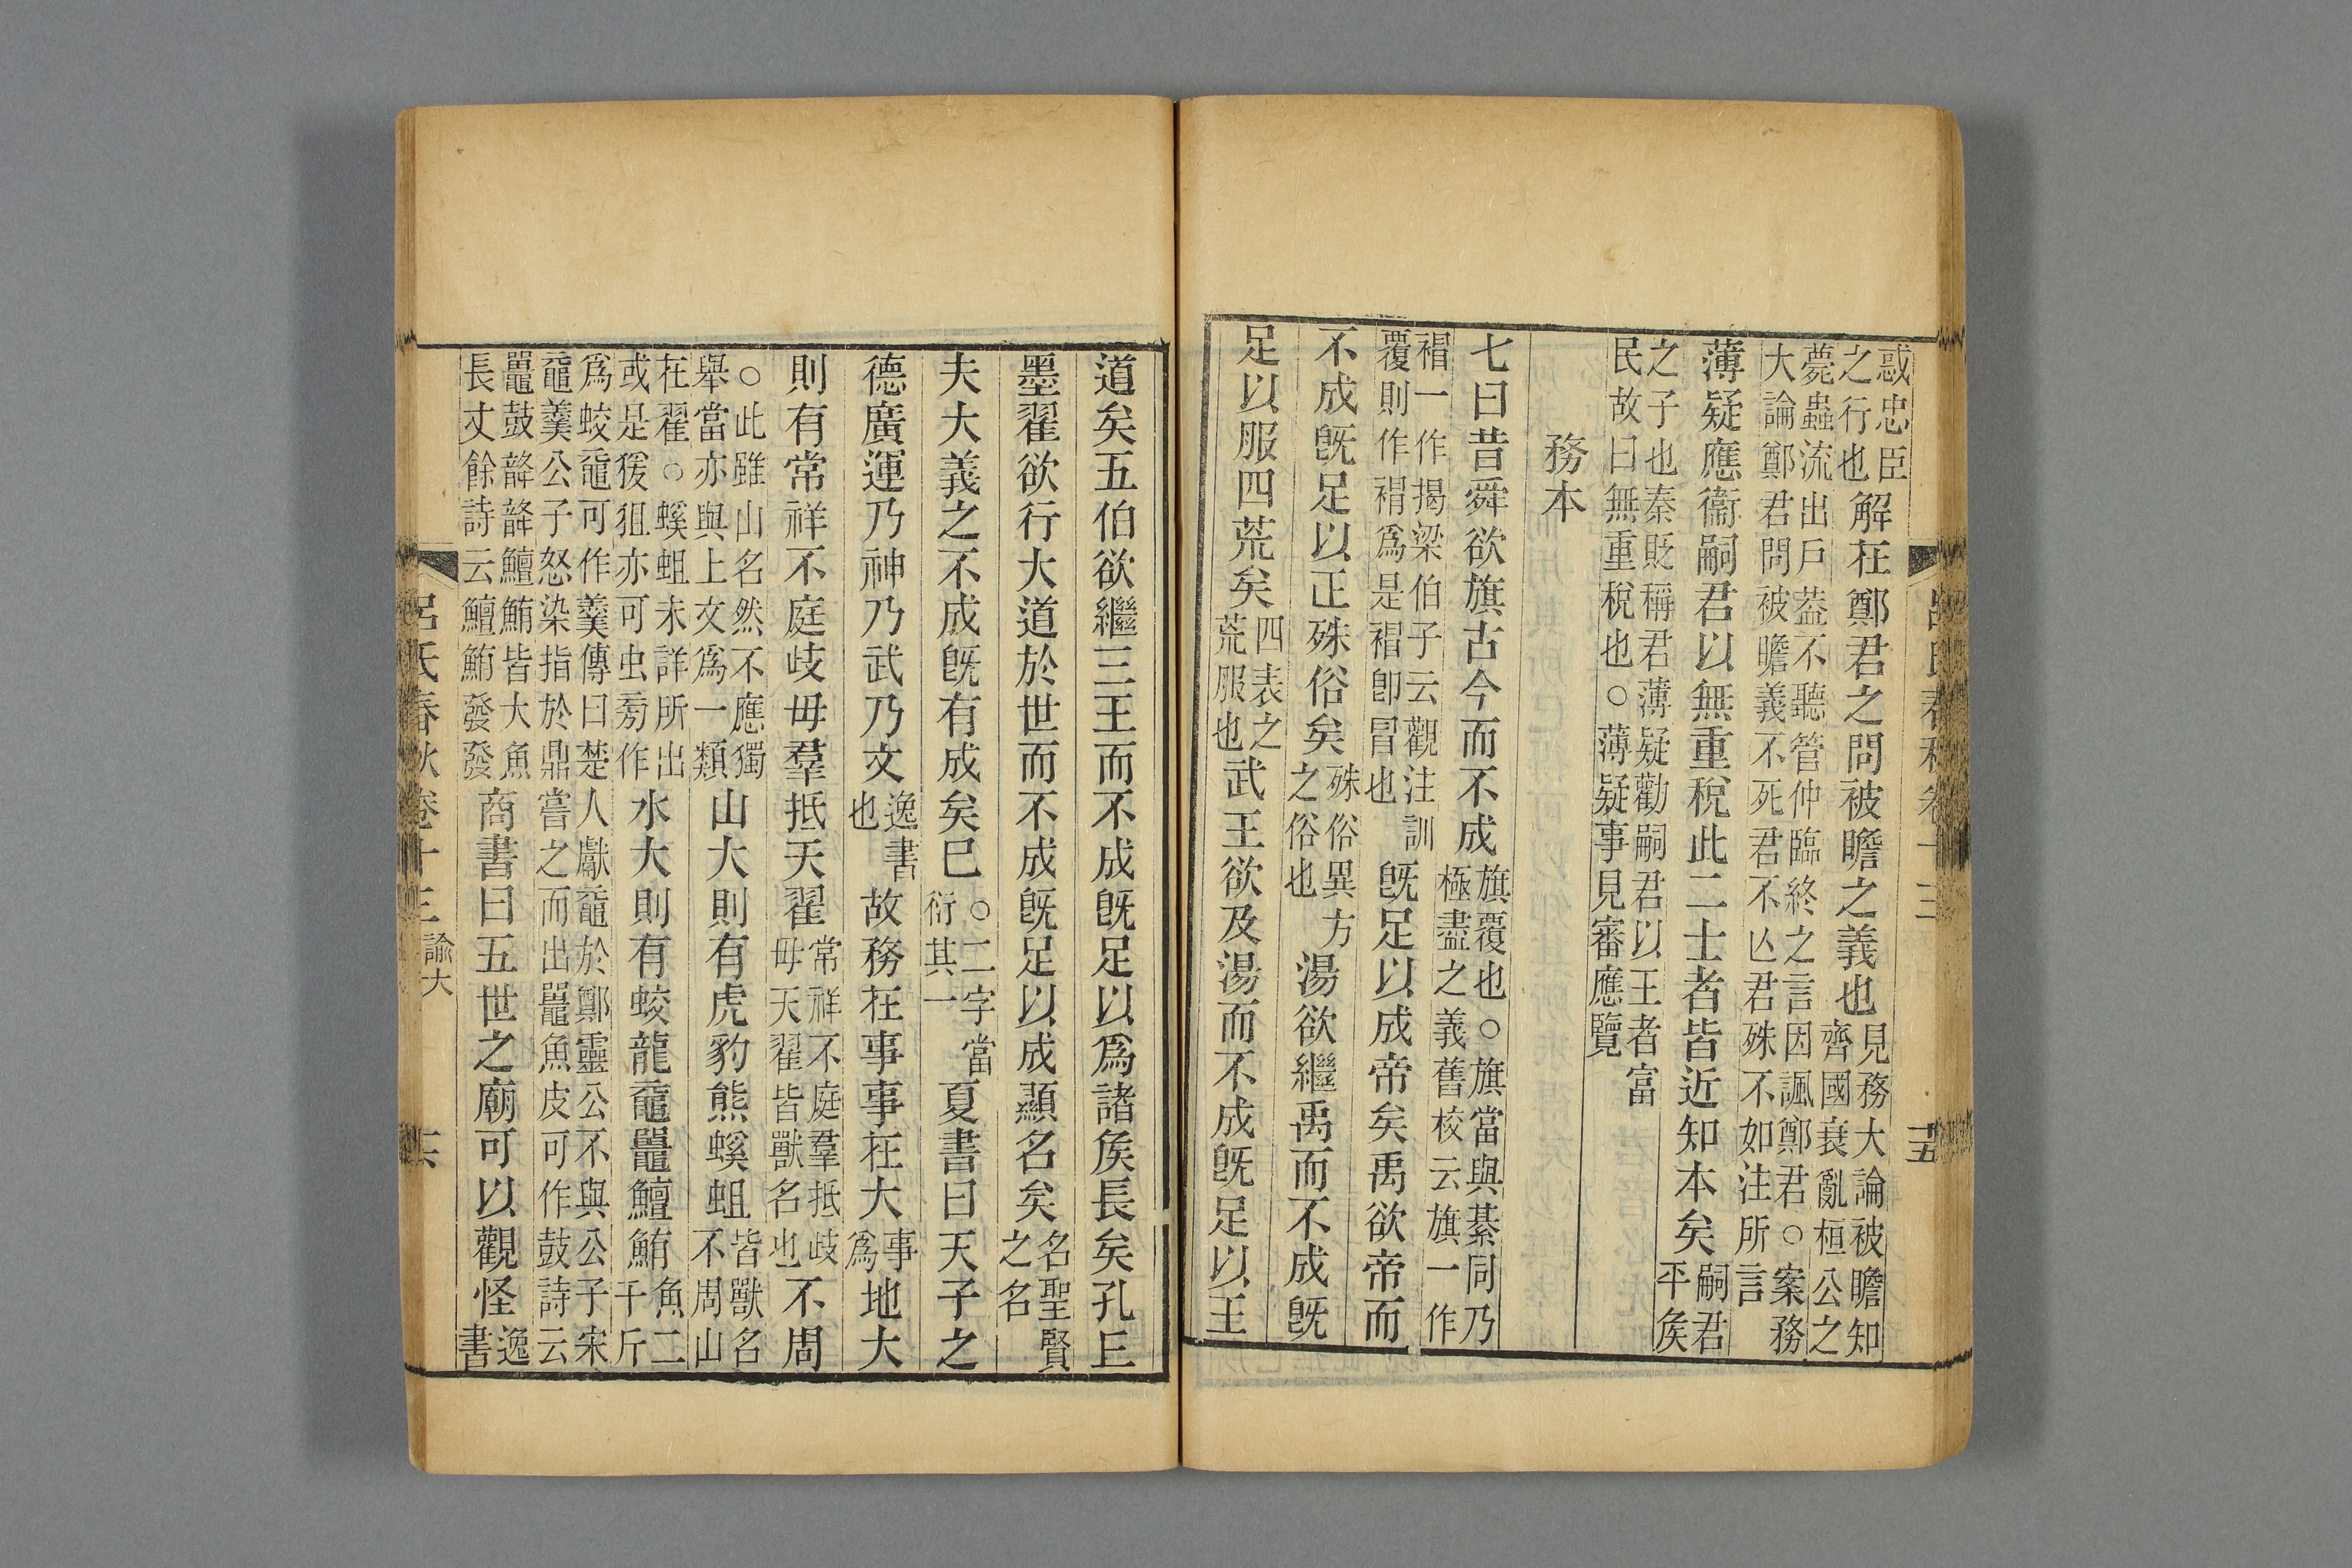 呂氏春秋卷十三　十五
惑忠臣之行也解在鄭君之問被瞻之義也見務大論被瞻知齊國衰亂桓公之
薨蟲流出戶葢不聽管仲臨終之言因諷鄭君○案務大論鄭君問被瞻義不死君不亾君殊不如注所言
薄疑應衞嗣君以無重稅此二士者皆近知本矣嗣君平矦
之子也秦貶稱君薄疑勸嗣君以王者富民故曰無重稅也○薄疑事見審應覽
務本
七曰昔舜欲旗古今而不成旗覆也○旗當與綦同乃極盡之義舊校云旗一作
褐一作揭梁伯子云觀注訓覆則作褐爲是褐卽冒也旣足以成帝矣禹欲帝而
不成旣足以正殊俗矣殊俗異方之俗也湯欲繼禹而不成旣
足以服四荒矣四表之荒服也武王欲及湯而不成旣足以王
道矣五伯欲繼三王而不成旣足以爲諸矦長矣孔丘
墨翟欲行大道於世而不成旣足以成顯名矣名聖賢之名
夫大義之不成旣有成矣已○二字當衍其一夏書曰天子之
德廣運乃神乃武乃文逸書也故務在事事在大事爲地大
則有常祥不庭歧毋羣抵天翟常祥不庭羣抵歧毋天翟皆獸名也不周
○此雖山名然不應獨舉當亦與上文爲一類山大則有虎豹熊螇蛆皆獸名不周山
在翟○螇蛆未詳所出或是猨狙亦可虫旁作水大則有蛟龍黿鼉鱣鮪魚二千斤
爲蛟黿可作羹傳曰楚人獻黿於鄭靈公不與公子宋黿羹公子怒染指於鼎嘗之而出鼉魚皮可作鼓詩云
鼉鼓韸韸鱣鮪皆大魚長丈餘詩云鱣鮪發發商書曰五世之廟可以觀怪逸書
呂氏春秋卷十三　諭大　十六